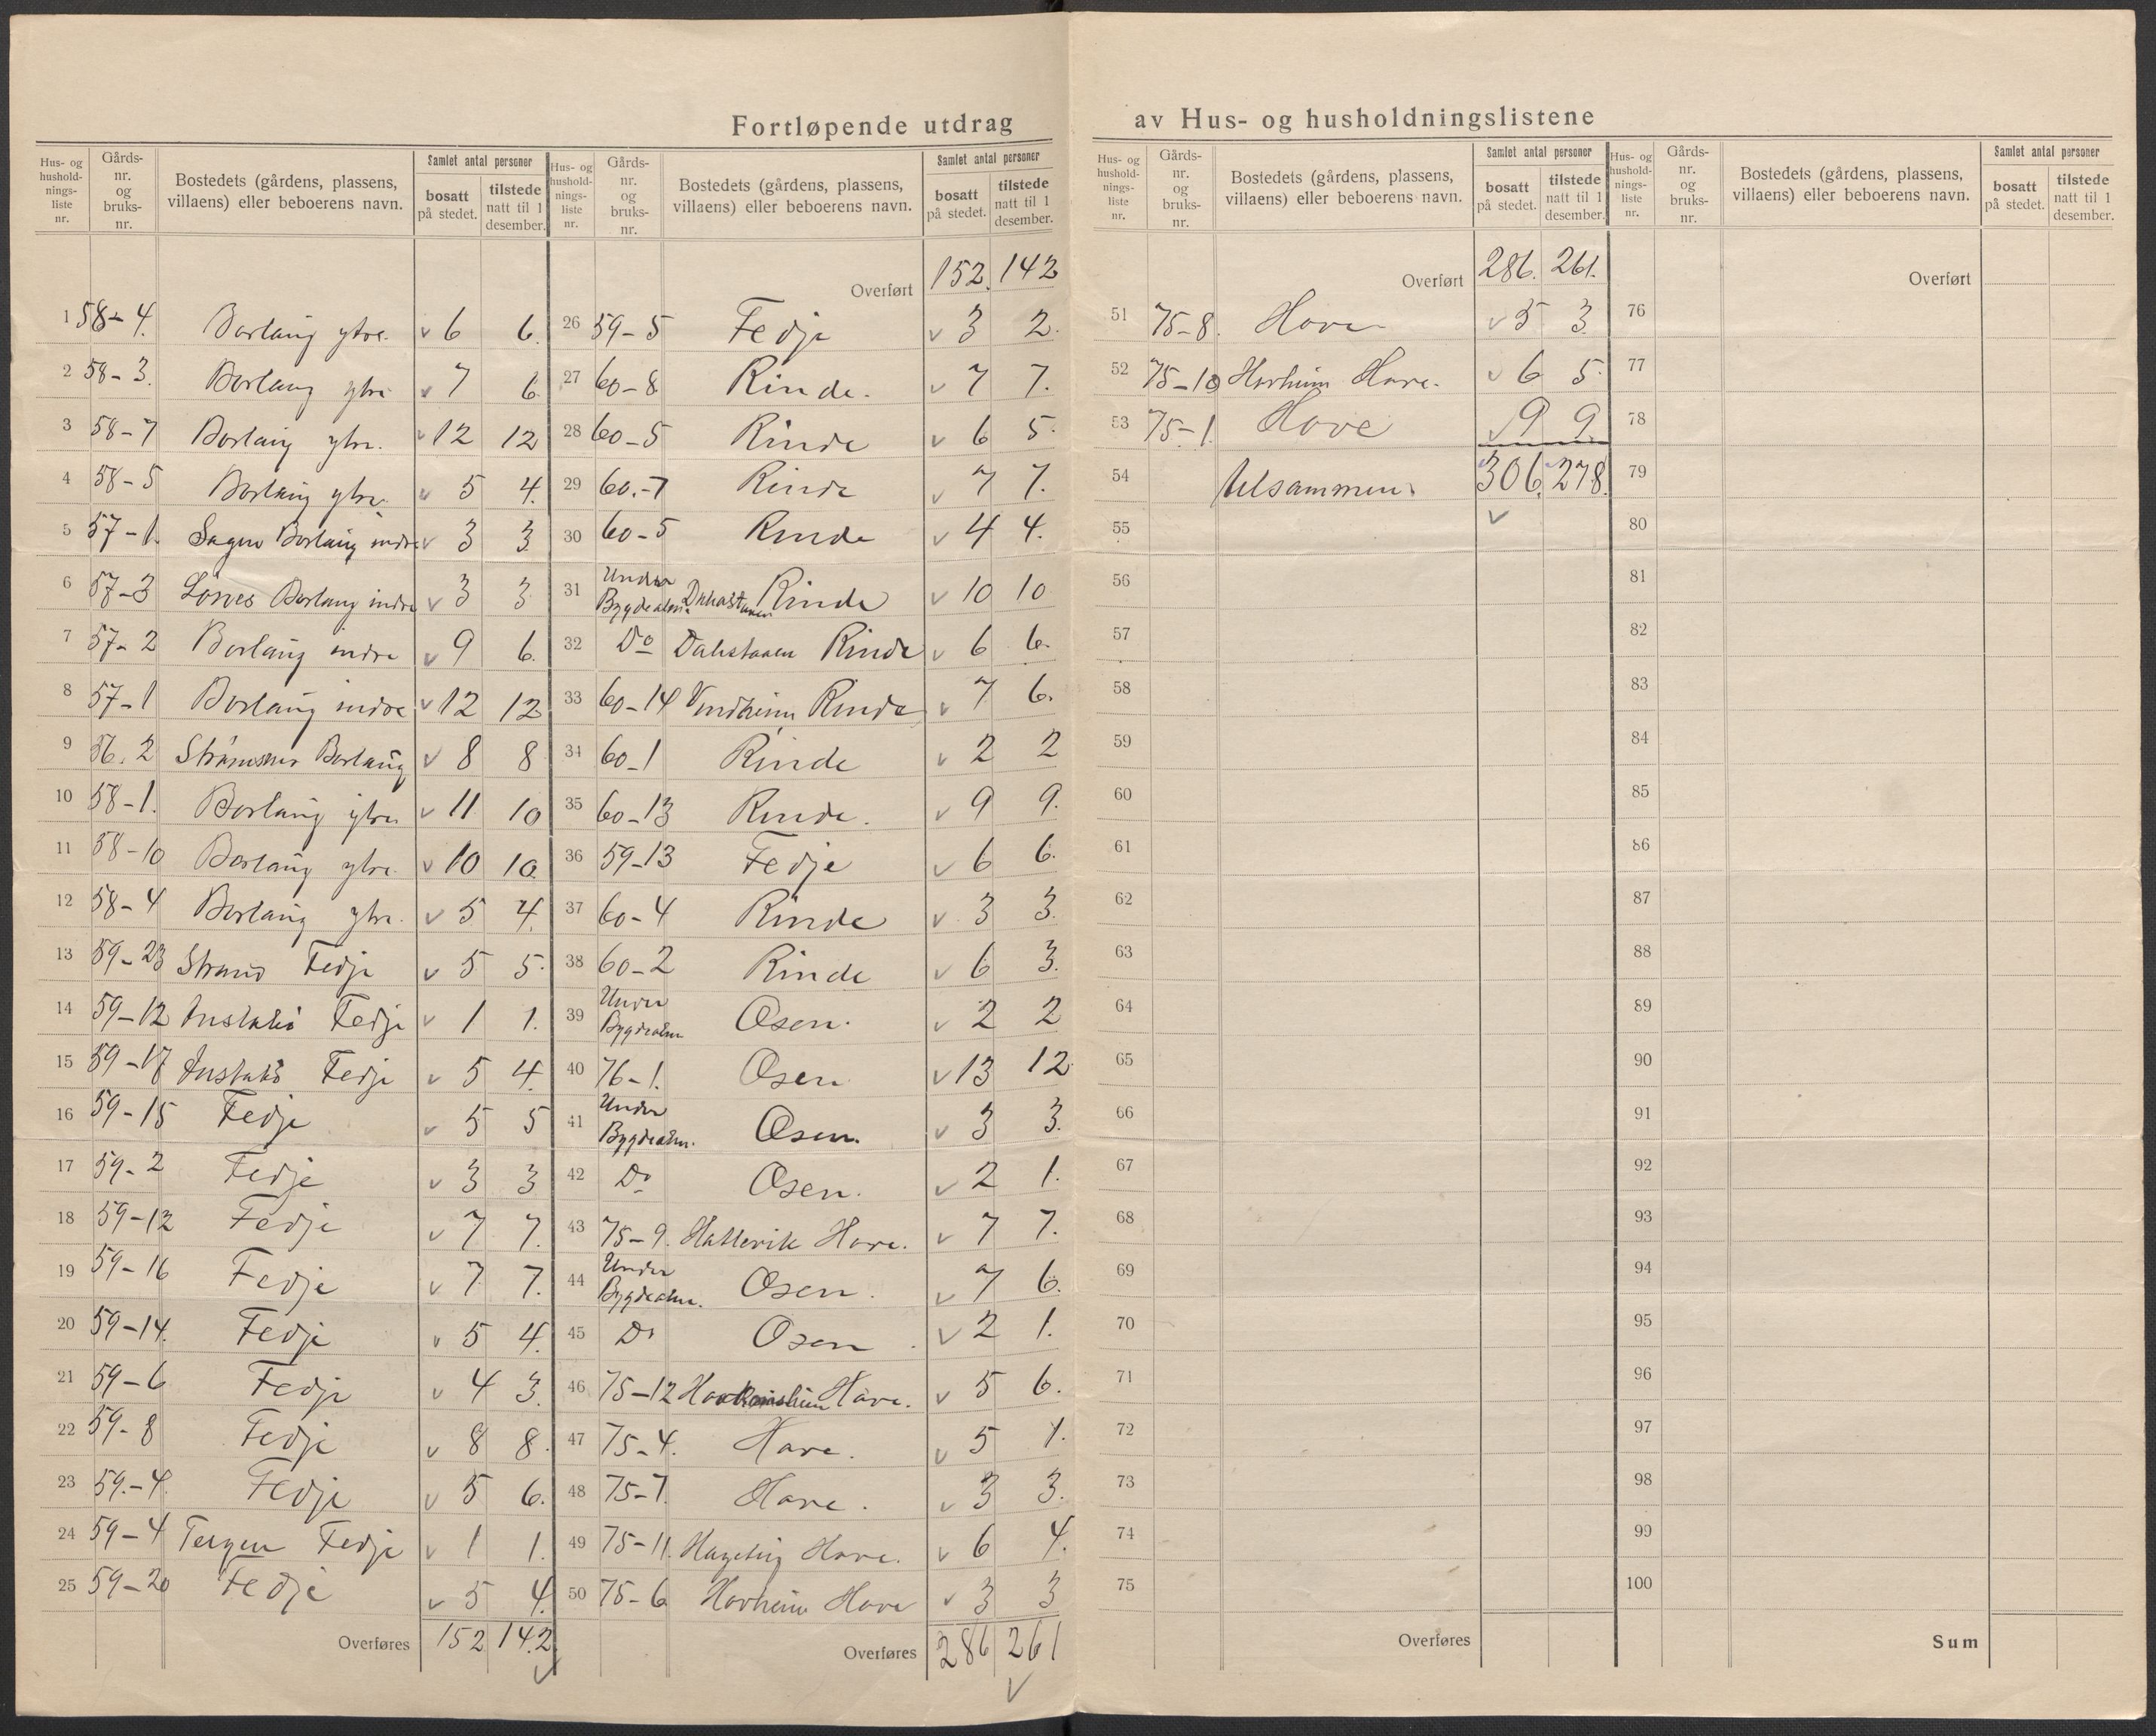 Fortløpende utdrag av Hus- og husholdningslistene
Hus- og husholdnings-liste nr. Gårds-nr. og bruks-nr. Bostedets (gårdens, plassens, villaens) eller beboerens navn. Samlet antal personer bosatt på stedet. tilstede natt til 1 desember.
1 58-4. Borlaug ytre. v 6 6.
2 58-3. Borlaug ytre v 7 6
3 58-7 Borlaug ytre. v 12 12
4 58-5 Borlaug ytre. v 5 4.
5 57-1. Borlaug indre v 3 3
6 57-3 Borlaug indre v 3 3
7 57-2 Borlaug indre v 9 6.
8 57-1 Borlaug indre v 12 12
9 56.2 Borlaug v 8 8
10 58-1. Borlaug ytre v 11 10
11 58-10 Borlaug ytre. v 10 10.
12 58-4 Borlaug ytre. v 5 4.
13 59-23 Strand Fedje v 5 5.
14 59-12 Fedje v 1 1.
15 59-17 Fedje v 5 4.
16 59-15 Fedje v 5 5
17 59-2 Fedje v 3 3
18 59-12 Fedje v 7 7.
19 59-16 Fedje v 7 7.
20 59-14. Fedje v 5 4.
21 59-6 Fedje v 4 3.
22 59-8 Fedje v 8 8.
23 59.-4. Fedje v 5 6.
24 59-4 Teigen Fedje v 1 1.
25 59-20 Fedje v 5 4.
Overføres 152 142
v
Hus- og husholdnings-liste nr. Gårds-nr. og bruks-nr. Bostedets (gårdens, plassens, villaens) eller beboerens navn. Samlet antal personer bosatt på stedet. tilstede natt til 1 desember.
Overført 152. 142
26 59-5 Fedje v 3 2.
27 60-8 Rinde. v 7 7.
28 60-5 Rinde v 6 5.
29 60.-7 Rinde v 7 7.
30 60-5 Rinde v 4 4.
31 Under Bygdealm. Rinde v 10 10
32 Do Rinde v 6 6.
33 60-14 Vindheim Rinde v 7 6.
34 60-1 Rinde v 2 2
35 60-13 Rinde. v 9 9.
36 59-13 Fedje v 6 6.
37 60-4 Rinde v 3 3.
38 60-2 Rinde v 6 3.
39 Under Bygdealm Osen. v 2 2
40 76-1. Osen v 13 12.
41 Under Bygdealm. Osen. v 3 3.
42 Do Osen. v 2 1.
43 75-9. Hallevik Hove. v 7 7.
44 Under Bygdealm. Osen. v 7 6.
45 Do Osen. v 2 1.
46 75-12 Hove. v 5 6.
47 75-4. Hove. v 5 1.
48 75-7. Hove. v 3 3.
49 75-11. Hove. v 6 4.
50 75-6 Hovheim Hove v 3 3
Overføres 286 261
v
Hus- og husholdnings-liste nr. Gårds-nr. og bruks-nr. Bostedets (gårdens, plassens, villaens) eller beboerens navn. Samlet antal personer bosatt på stedet. tilstede natt til 1 desember.
Overført 286. 261.
51 75-8. Hove v 5 3
52 75-10 Hovheim Hove. v 6 5.
53 75-1. Hove v 9 9.
54 tilsammen. 306. 278.
55 v
56
57
58
59
60
61
62
63
64
65
66
67
68
69
70
71
72
73
74
75
Overføres
Hus- og husholdnings-liste nr. Gårds-nr. og bruks-nr. Bostedets (gårdens, plassens, villaens) eller beboerens navn. Samlet antal personer bosatt på stedet. tilstede natt til 1 desember.
Overført
76
77
78
79
80
81
82
83
84
85
86
87
88
89
90
91
92
93
94
95
96
97
98
99
100
Sum